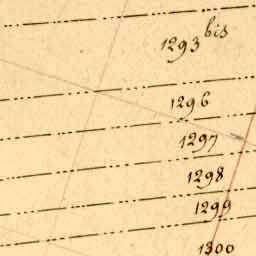 1293 bis
1296
1297
1298
1299
1300